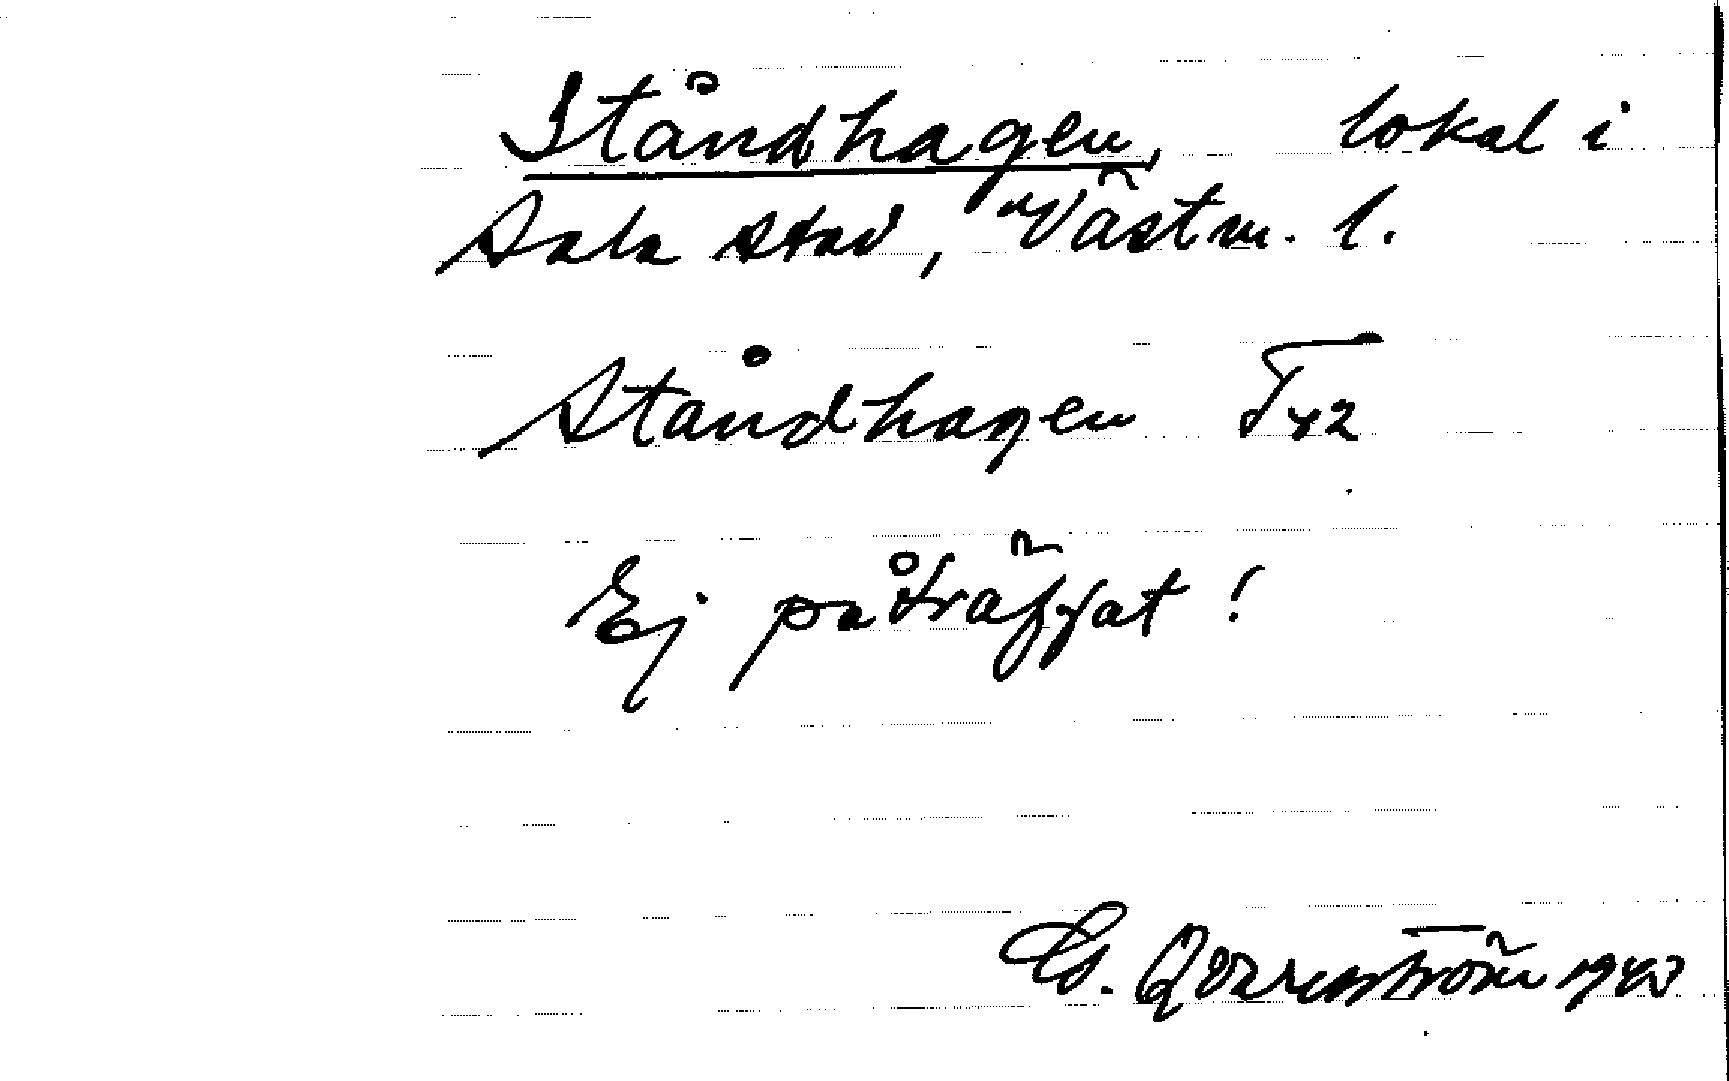 Ståndhagen, lokal i
Sala stad, Västm. l.
Ståndhagen T42
Ej påträffat!
G. Qvarnström 1943